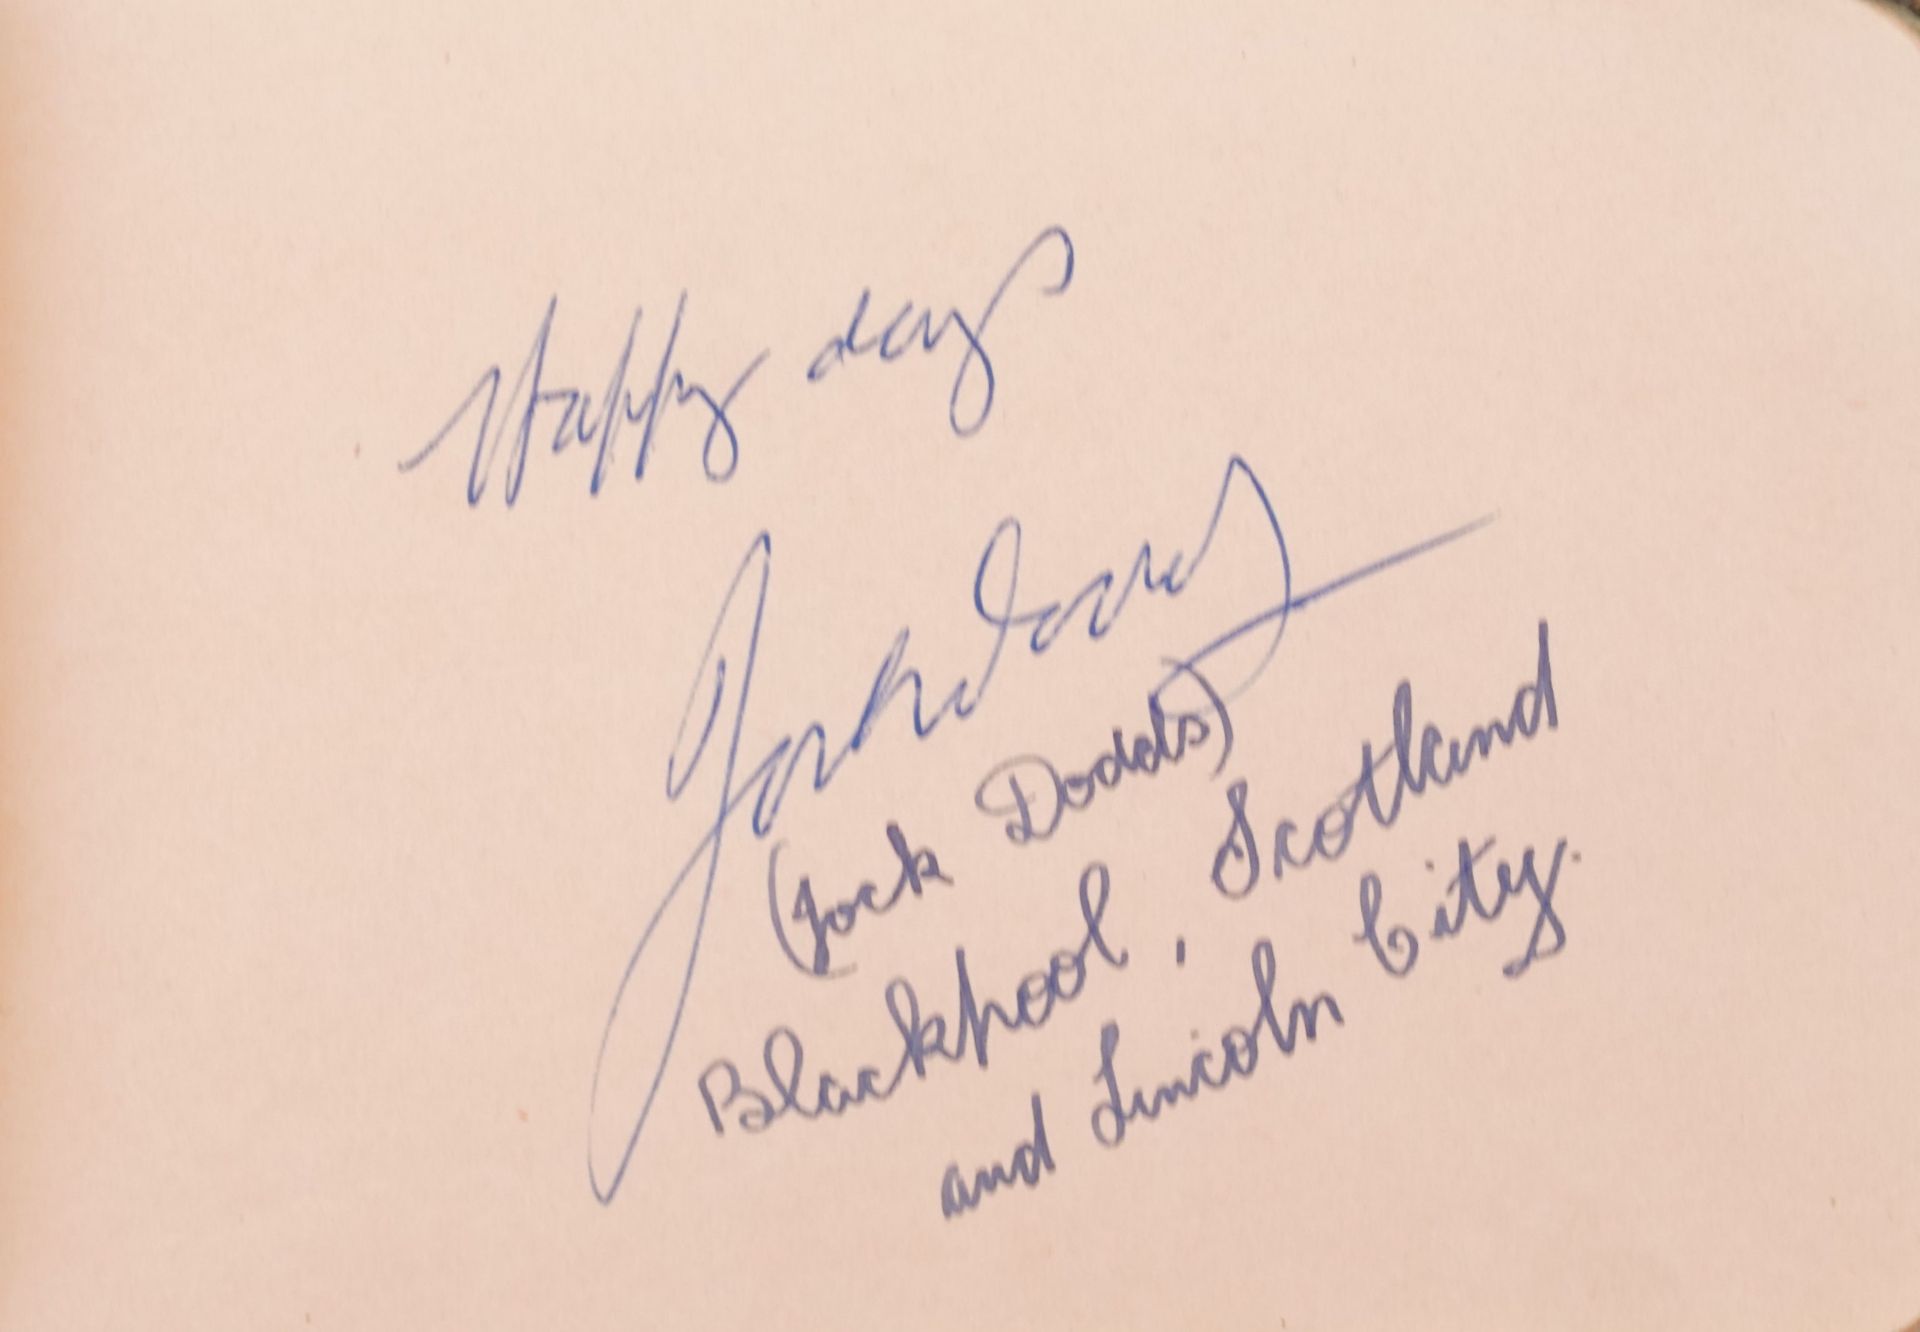 Happy days
Jock Dodds
(Jock Dodds)
Blackpool, Scotland
and Lincoln City.